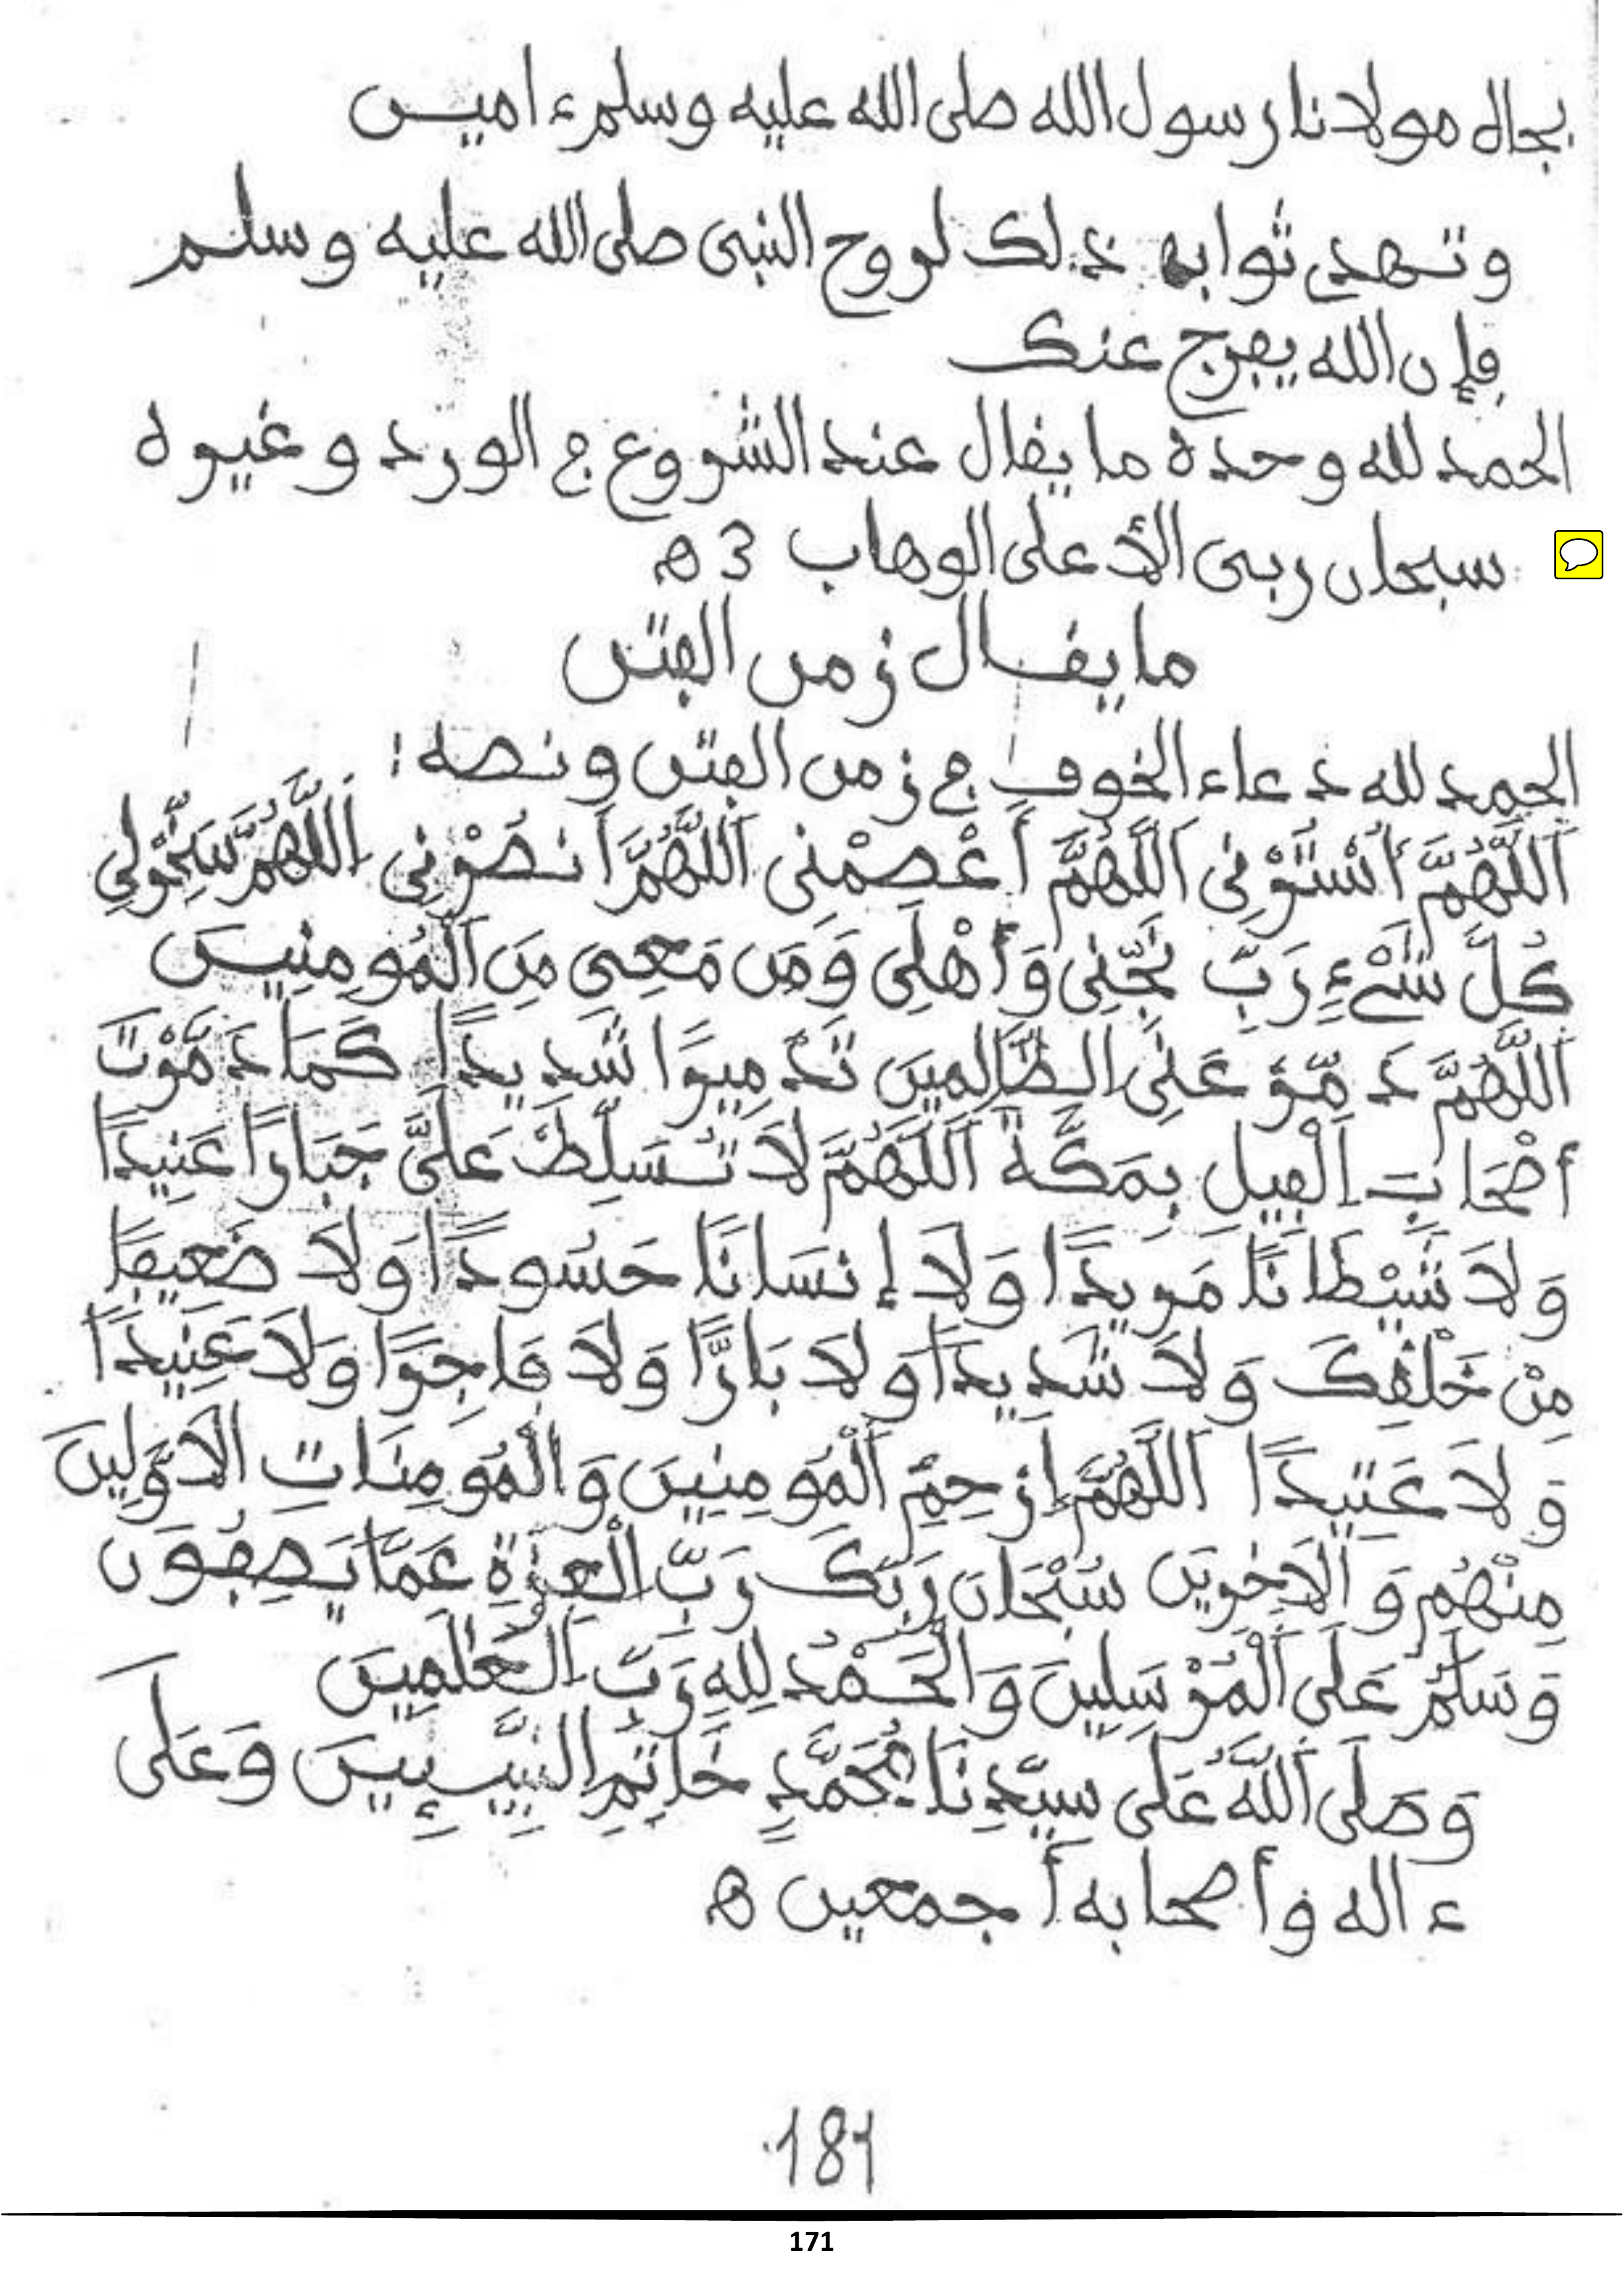 بجاه مولانا رسول الله صلى الله عليه وسلم ءامين
وتهدي ثوابه ذلك لروح النبي صلى الله عليه وسلم
فإن الله يفرج عنك
الحمد لله وحده ما يقال عند الشروع في الورد وغيره
سبحان ربي الأعلى الوهاب 3 ه
ما يقال زمن الفتن
الحمد لله دعاء الخوف في زمن الفتن ونصه :
اَللَّهُمَّ أُسْتُرْنِي اَللَّهُمَّ اَعْصِمْنِي اَللَّهُمَّ اَنصُرْنِي اَللَّهُمَّ سَخِّرْلِي
كُلَّ شَيْءٍ رَبِّ نَجِّنِي وَأَهْلِي وَمَن مَعِيَ مِنَ اَلْمُومِنِينَ
اَللَّهُمَّ دَمِّرْ عَلَى الظَّالِمِينَ تَدْمِيرًا شَدِيدًا كَمَا دَمَّرْتَ
أَصْحَابَ اَلْفِيلِ بِمَكَّةَ اَللَّهُمَّ لَا تُسَلِّطْ عَلَيَّ جَبَارًا عَنِيدًا
وَلَا شَيْطَانًا مَرِيدًا وَلَا إِنسَانًا حَسُودًا وَلَا ضَعِيفًا
مِنْ خَلْقِكَ وَلَا شَدِيدًا وَلَا بَارًّا وَلَا فَاجِرًا وَلَا عَبِيدًا
وَلَا عَتِيدًا اَللَّهُمَّ اِرْحِمِ اَلْمُومِنِينَ وَالْمُومِنَاتِ الَاوَّلِينَ
مِنْهُمْ وَالَاخِرِينَ سُبْحَانَ رَبِّكَ رَبِّ الْعِزَّةِ عَمَّا يَصِفُونَ
وَسَلَٰمٌ عَلَى اَلْمُرْسَلِينَ وَالْحَمْدُ لِلهِ رَبِّ اَلْعَٰلَمِينَ
وَصَلَّى اَللَّهُ عَلَى سَيِّدِنَا مُحَمَّدٍ خَاتِمِ النَّبِيِّينَ وَعَلَى
ءاله وأصحابه أجمعين ه
181
171